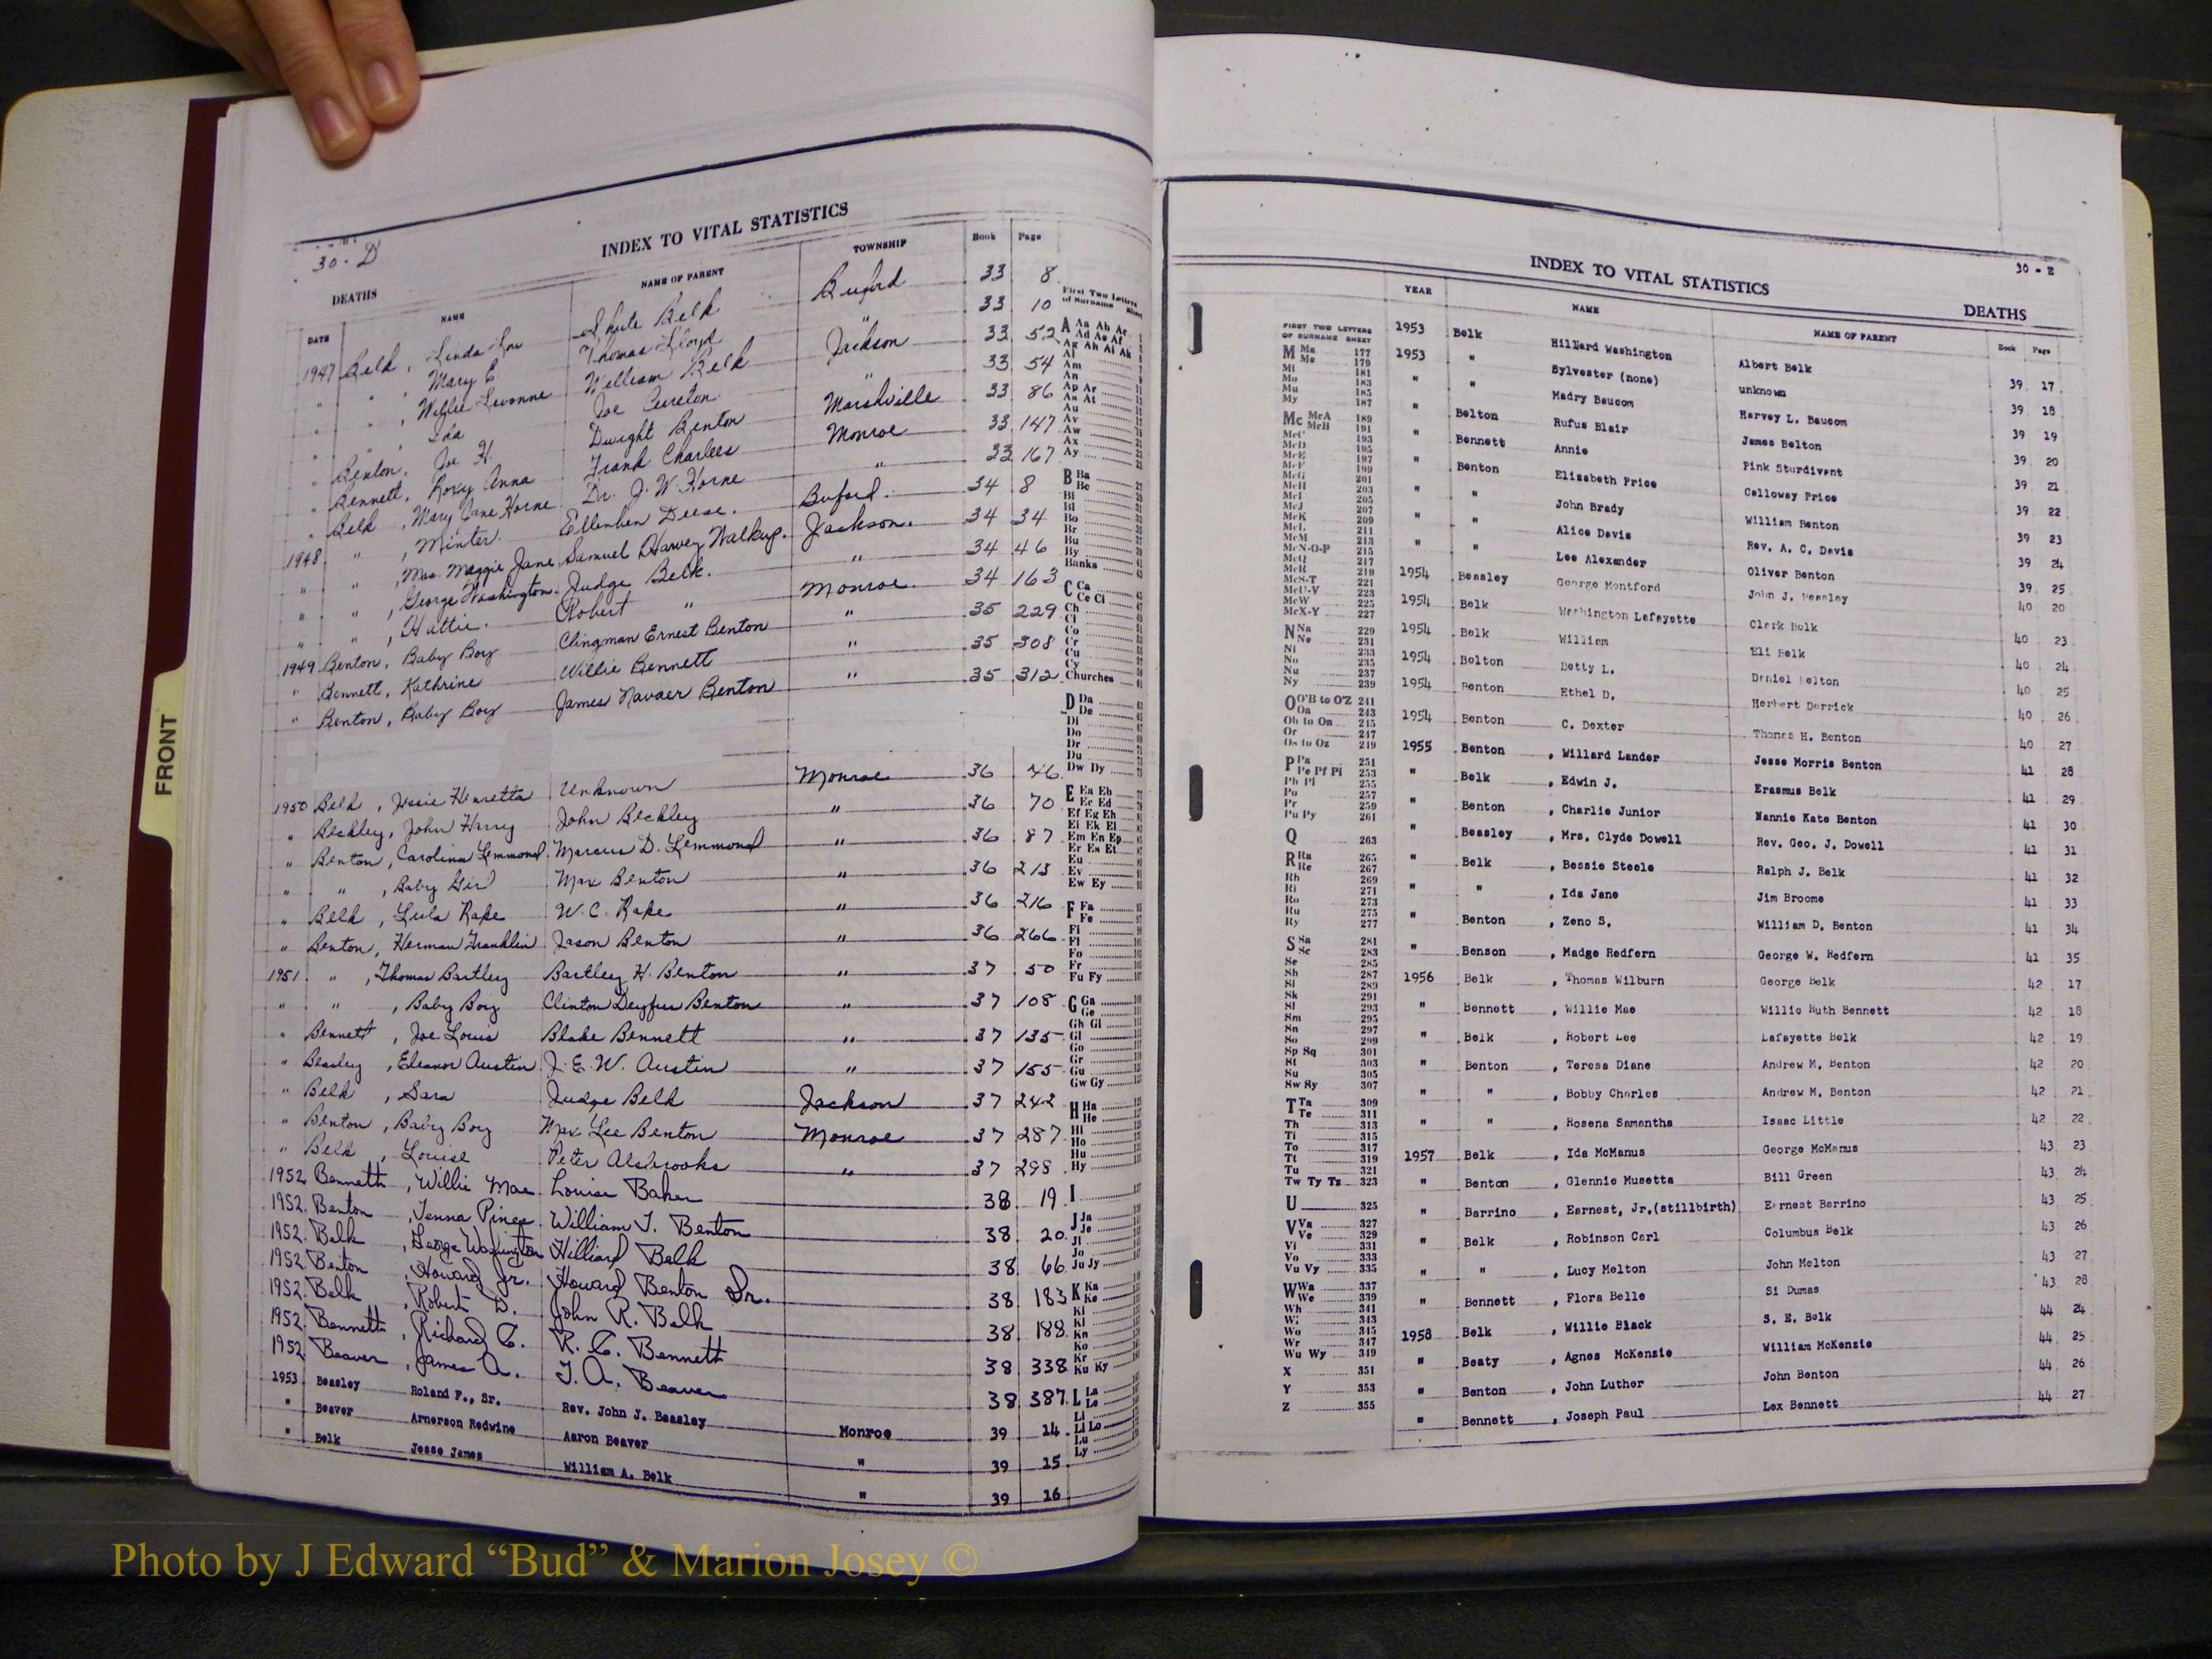 FRONT
30-D
INDEX TO VITAL STATISTICS
DEATHS
DATE NAME NAME OF PARENT TOWNSHIP Book Page
1947 Belk, Linda Lou Shute Belk Buford 33 8
" " , Mary E. Thomas Lloyd " 33 10
" " , Willie Levonne William Belk Jackson 33 52
" " Ida Joe Cureton " 33 54
" Benton, Joe H. Dwight Benton Marshville 33 86
" Bennett, Roxy Anna Frank Charlees Monroe 33 147
" Belk, Mary Jane Horne Dr. J. W. Horne " 33 167
1948 " , Minter. Ellenben Deese. Buford. 34 8
" " , Mrs. Maggie Jane Samuel Harvey Walkup. Jackson. 34 34
" " , George Washington. Judge Belk. " 34 46
" " , Hattie. Robert " Monroe. 34 163
1949 Benton, Baby Boy Clingman Ernest Benton " 35 229
" Bennett, Kathrine Willie Bennett " 35 308
" Benton, Baby Boy James Navaer Benton " 35 312
1950 Belk, Jessie Henretta Unknown Monroe 36 46
" Beckley, John Harry John Beckley " 36 70
" Benton, Carolina Lemmond Marcus D. Lemmond " 36 87
" " , Baby Girl Max Benton " 36 213
" Belk, Lula Rape W. C. Rape " 36 216
" Benton, Herman Franklin Jason Benton " 36 266
1951 " , Thomas Bartley Bartley H. Benton " 37 50
" " , Baby Boy Clinton Deyfus Benton " 37 108
" Bennett, Joe Louis Blake Bennett " 37 135
" Beasley, Eleanor Austin J. E. W. Austin " 37 155
" Belk, Sara Judge Belk Jackson 37 242
" Benton, Baby Boy Max Lee Benton Monroe 37 287
" Belk, Louise Peter Alsbrooks " 37 298
1952 Bennett, Willie Mae Louise Baker 38 19
1952. Benton, Jenna Pines William T. Benton 38 20
1952. Belk, George Washington Hilliard Belk 38 66
1952. Benton, Howard Jr. Howard Benton Sr. 38 183
1952. Belk, Robert D. John R. Belk 38 188
1952. Bennett, Richard C. R. C. Bennett 38 338
1952 Beaver, James A. T. A. Beaver 38 387
1953 Beasley Roland F., Sr. Rev. John J. Beasley Monroe 39 14
" Beaver Arnerson Redwine Aaron Beaver " 39 15
" Belk Jesse James William A. Belk " 39 16
First Two Letters
of Surname
A Aa Ab Ac
Ad Ae Af
Ag Ah Ai Ak
Al
Am
An
Ap Ar
As At
Au
Av
Aw
Ax
Ay
B Ba
Be
Bi
Bl
Bo
Br
Bu
By
Banks
C Ca
Ce Ci
Ch
Cl
Co
Cr
Cu
Cy
Churches
D Da
De
Di
Do
Dr
Du
Dw Dy
E Ea Eb
Ec Ed
Ef Eg Eh
Ei Ek El
Em En Ep
Er Es Et
Eu
Ev
Ew Ey
F Fa
Fe
Fi
Fl
Fo
Fr
Fu Fy
G Ga
Ge
Gh Gi
Gl
Go
Gr
Gu
Gw Gy
H Ha
He
Hi
Ho
Hu
Hy
I
J Ja
Je
Ji
Jo
Ju Jy
K Ka
Ke
Ki
Kl
Kn
Ko
Kr
Ku Ky
L La
Le
Li
Ll Lo
Lu
Ly
INDEX TO VITAL STATISTICS
30 - E
DEATHS
YEAR NAME NAME OF PARENT Book Page
FIRST TWO LETTERS
OF SURNAME SHEET
M Ma 177
Me 179
Mi 181
Mo 183
Mu 185
My 187
Mc McA 189
McB 191
McC 193
McD 195
McE 197
McF 199
McG 201
McH 203
McI 205
McJ 207
McK 209
McL 211
McM 213
McN-O-P 215
McQ 217
McR 219
McS-T 221
McU-V 223
McW 225
McX-Y 227
N Na 229
Ne 231
Ni 233
No 235
Nu 237
Ny 239
O O'B to O'Z 241
Oa 243
Ob to On 245
Or 247
Os to Oz 249
P Pa 251
Pe Pf Pi 253
Ph Pl 255
Po 257
Pr 259
Pu Py 261
Q 263
R Ra 265
Re 267
Rh 269
Ri 271
Ro 273
Ru 275
Ry 277
S Sa 281
Sc 283
Se 285
Sh 287
Si 289
Sk 291
Sl 293
Sm 295
Sn 297
So 299
Sp Sq 301
St 303
Su 305
Sw Sy 307
T Ta 309
Te 311
Th 313
Ti 315
To 317
Tt 319
Tu 321
Tw Ty Tz 323
U 325
V Va 327
Ve 329
Vi 331
Vo 333
Vu Vy 335
W Wa 337
We 339
Wh 341
Wi 343
Wo 345
Wr 347
Wu Wy 349
X 351
Y 353
Z 355
1953 Belk Hilliard Washington Albert Belk 39 17
1953 " Sylvester (none) unknown 39 18
" " Madry Baucom Harvey L. Baucom 39 19
" Belton Rufus Blair James Belton 39 20
" Bennett Annie Pink Sturdivant 39 21
" Benton Elizabeth Price Calloway Price 39 22
" " John Brady William Benton 39 23
" " Alice Davis Rev. A. C. Davis 39 24
" " Lee Alexander Oliver Benton 39 25
1954 Beasley George Montford John J. Beasley 40 20
1954 Belk Washington Lafayette Clark Belk 40 23
1954 Belk William Eli Belk 40 24
1954 Belton Betty L. Daniel Belton 40 25
1954 Benton Ethel D. Herbert Derrick 40 26
1954 Benton C. Dexter Thomas H. Benton 40 27
1955 Benton , Willard Lander Jesse Morris Benton 41 28
" Belk , Edwin J. Erasmus Belk 41 29
" Benton , Charlie Junior Nannie Kate Benton 41 30
" Beasley , Mrs. Clyde Dowell Rev. Geo. J. Dowell 41 31
" Belk , Bessie Steele Ralph J. Belk 41 32
" " , Ida Jane Jim Broome 41 33
" Benton , Zeno S. William D. Benton 41 34
" Benson , Madge Redfern George W. Redfern 41 35
1956 Belk , Thomas Wilburn George Belk 42 17
" Bennett , Willie Mae Willie Ruth Bennett 42 18
" Belk , Robert Lee Lafayette Belk 42 19
" Benton , Teresa Diane Andrew M. Benton 42 20
" " , Bobby Charles Andrew M. Benton 42 21
" " , Rosena Samantha Isaac Little 42 22
1957 Belk , Ida McManus George McManus 43 23
" Benton , Glennie Musetta Bill Green 43 24
" Barrino , Earnest, Jr.(stillbirth) Ernest Barrino 43 25
" Belk , Robinson Carl Columbus Belk 43 26
" " , Lucy Melton John Melton 43 27
" Bennett , Flora Belle Si Dumas 43 28
1958 Belk , Willie Black S. E. Belk 44 24
" Beaty , Agnes McKenzie William McKenzie 44 25
" Benton , John Luther John Benton 44 26
" Bennett , Joseph Paul Lex Bennett 44 27
Photo by J Edward “Bud” & Marion Josey ©